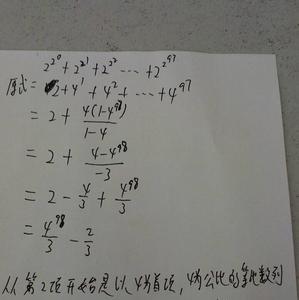 2^{2^0}+2^{2^1}+2^{2^2}…+2^{2^{97}}
原式=2+4^1+4^2+…+4^{97}
=2+\frac{4(1-4^{98})}{1-4}
=2+\frac{4-4^{98}}{-3}
=2-\frac{4}{3}+\frac{4^{98}}{3}
=\frac{4^{98}}{3}-\frac{2}{3}
从第2项开始是以4为首项,4为公比的等比数列